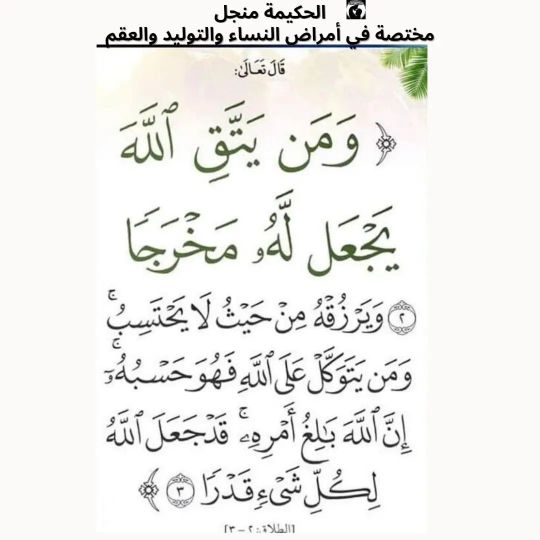 الحكيمة منجل
مختصة في أمراض النساء والتوليد والعقم
قَالَ تَعَالَىٰ:
﴿ وَمَن يَتَّقِ ٱللَّهَ
يَجْعَل لَّهُۥ مَخْرَجًا
٢ وَيَرْزُقْهُ مِنْ حَيْثُ لَا يَحْتَسِبُ ۚ
وَمَن يَتَوَكَّلْ عَلَى ٱللَّهِ فَهُوَ حَسْبُهُۥٓ ۚ
إِنَّ ٱللَّهَ بَـٰلِغُ أَمْرِهِۦ ۚ قَدْ جَعَلَ ٱللَّهُ
لِكُلِّ شَىْءٍ قَدْرًا ٣ ﴾
[الطلاق: ٢ - ٣]